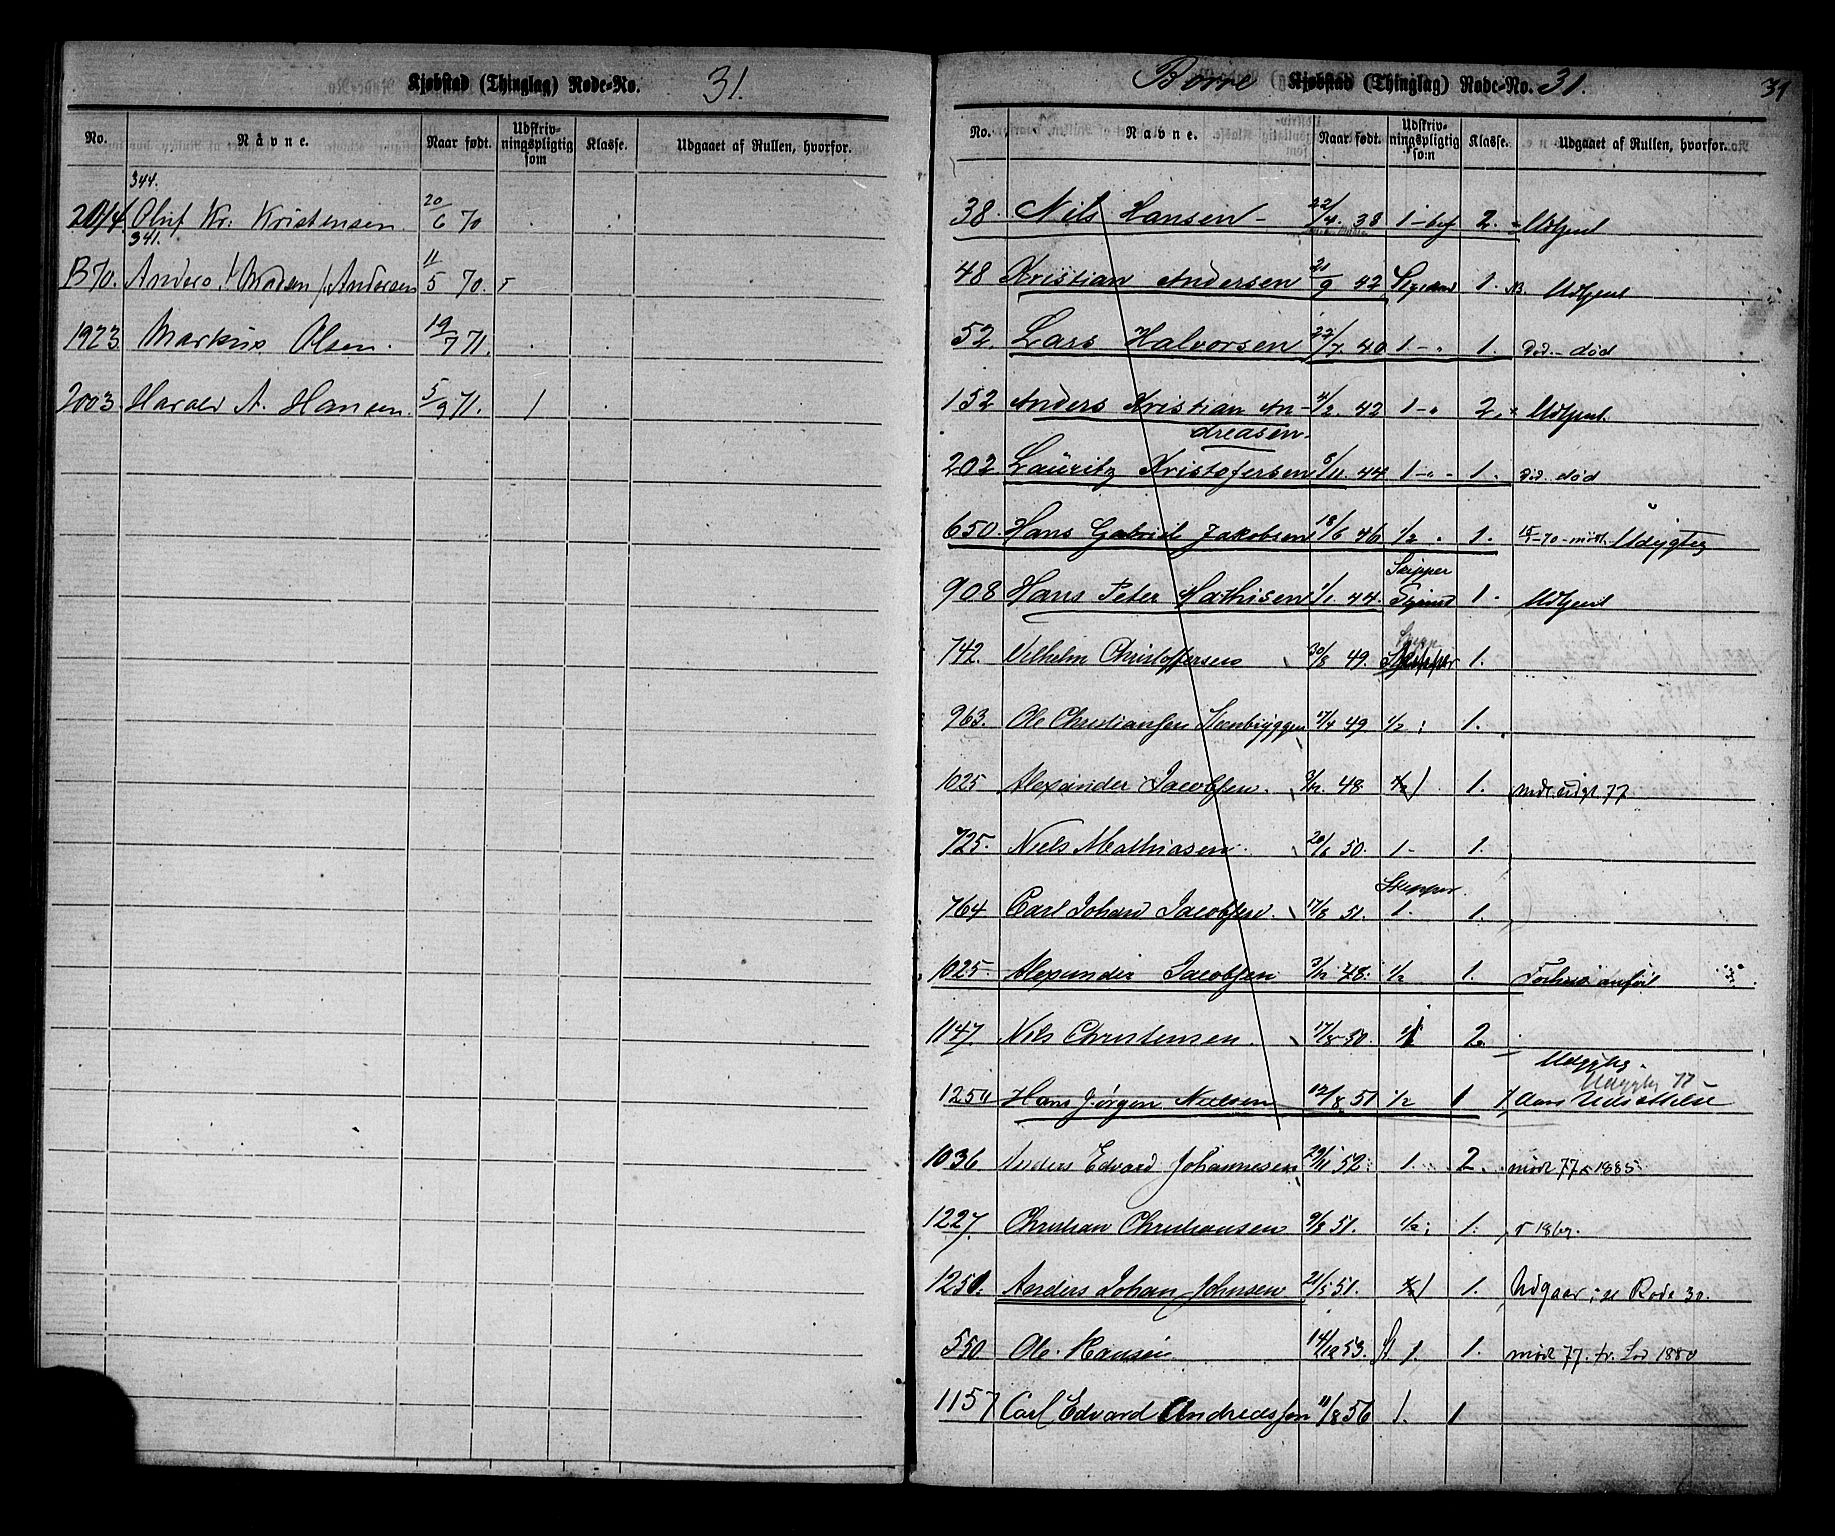 Kjøbstad (Thinglag) Rode-No. 31.
No. Navne. Naar født. Udskriv-ningspligtig som Klasse. Udgaaet af Rullen, hvorfor.
344.
2014 Oluf Kr. Kristensen 20/6 70
341.
B70. Anders Andersen 11/5 70.
1923 Markus Olsen. 19/7 71.
2003. Harald A. Hansen. 5/9 71. 1
Borre Kjøbstad (Thinglag) Rode-No. 31. 31
No. Navne. Naar født. Udskriv-ningspligtig som Klasse. Udgaaet af Rullen, hvorfor.
38. Nils Hansen 22/4. 38 1 2. Udtjent
48 Kristian Andersen 21/9 42 1. Udtjent
52. Lars Halvorsen 22/7 40 1 1. død
152 Anders Kristian An-
dreasen. 4/2 42 1 2. Udtjent
202 Lauritz Kristofersen 8/11. 44 1 1. død
650. Hans Gabriel Jakobsen 18/6 46 1/2 1. Udygtig
Skipper
908 Hans Peter Mathisen 1/1 44. 1. Udtjent
742. Vilhelm Christoffersen 30/8 49. Skipper 1.
963. Ole Christiansen Steenbryggen 17/4 49. 1/2 1.
1025 Alexander Jacobsen. 3/12. 48 1.
725. Niels Mathiasen. 20/6 50. 1 1.
Skipper
764 Carl Johan Jacobsen. 17/8 51. 1. 1.
1025. Alexander Jacobsen 3/12 48. 1/2 1.
1147. Nils Christensen. 17/8 50. 2.
Udygtig
Udygtig 77
1251 Hans Jørgen Nielsen 12/8 51 1/2 1 Aars Udsættelse
1036 Anders Edvard Johannesen 29/11 52. 1. 2. mødt 77 1885
1227. Christian Christiansen 9/8 51. 1/2 1.
1250. Anders Johan Johnsen 21/5 51. 1. Udgaar, se Rode 30.
550 Ole Hansen 14/12 53. 1. 1. mødt 77. fr. Lod 1880
1157 Carl Edvard Andreassen 11/8 56 1. 1